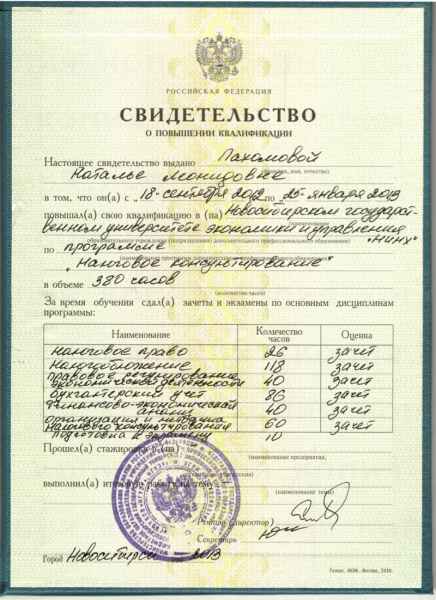 РОССИЙСКАЯ ФЕДЕРАЦИЯ
СВИДЕТЕЛЬСТВО
О ПОВЫШЕНИИ КВАЛИФИКАЦИИ
Настоящее свидетельство выдано Пахомовой
Наталье
в том, что он(а) с „18 сентября 2012 по „25 января 2013
повышал(а) свою квалификацию в (на) Новосибирском государст-
венном университете экономики и управления
„НИНХ"
по программе
„Налоговое консультирование"
в объеме 380 часов
(количество часов)
За время обучения сдал(а) зачеты и экзамены по основным дисциплинам
программы:
Наименование Количество часов Оценка
налоговое право 26 зачёт
налогообложение 118 зачёт
правовое регулирование
экономической деятельности 40 зачёт
бухгалтерский учёт 86 зачёт
финансово-экономический
анализ 40 зачёт
организация и методика
налогового консультирования 60 зачёт
подготовка к экзамену 10
Прошел(а) стажировку в (на)
(наименование предприятия,
выполнил(а) итоговую работу на тему
(наименование темы)
Ректор (директор)
Секретарь
Город Новосибирск 2013